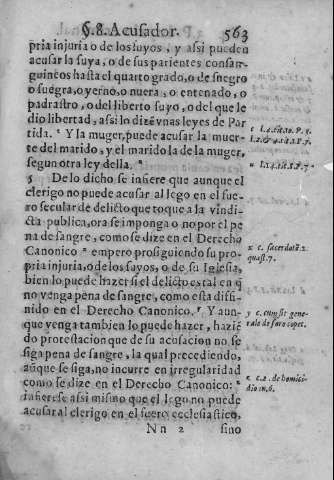 §.8. Acusador. 563
pria injuria o de los suyos, y assi pueden
acusar la suya, o de sus parientes consan-
guineos hasta el quarto grado, o de suegro
o suegra, o yerno, o nuera, o entenado, o
padrastro, o del liberto suyo, o del que le
dio libertad, assi lo dizē vnas leyes de Par
tida. t Y la muger, puede acusar la muer-
te del marido, y el marido la de la muger,
segun otra ley della. u
5 De lo dicho se infiere que aunque el
clerigo no puede acusar al lego en el fue-
ro secular de delicto que toque a la vindi-
cta publica, ora se imponga o no por el pe
na de sangre, como se dize en el Derecho
Canonico x empero prosiguiendo su pro-
pria injuria, o de los suyos, o de su Iglesia,
bien lo puede hazer si el delicto es tal en q̃
no venga pena de sangre, como esta diffi-
nido en el Derecho Canonico. y Y aun-
que venga tambien lo puede hazer, haziē
do protestacion que de su acusacion no se
siga pena de sangre, la qual precediendo,
aũque se siga, no incurre en irregularidad
como se dize en el Derecho Canonico: z
infierese assi mismo que el lego no puede
acusar al clerigo en el fuero ecclesiastico,
N n 2 sino
t l.2. & 4.tit.8.P.7.
u l.14.tit.8.P.7.
x c. sacerdotũ.2.
quæst.7.
y c. cum sit gene-
rale de foro compet.
z c.2. de homici-
dio in.6.